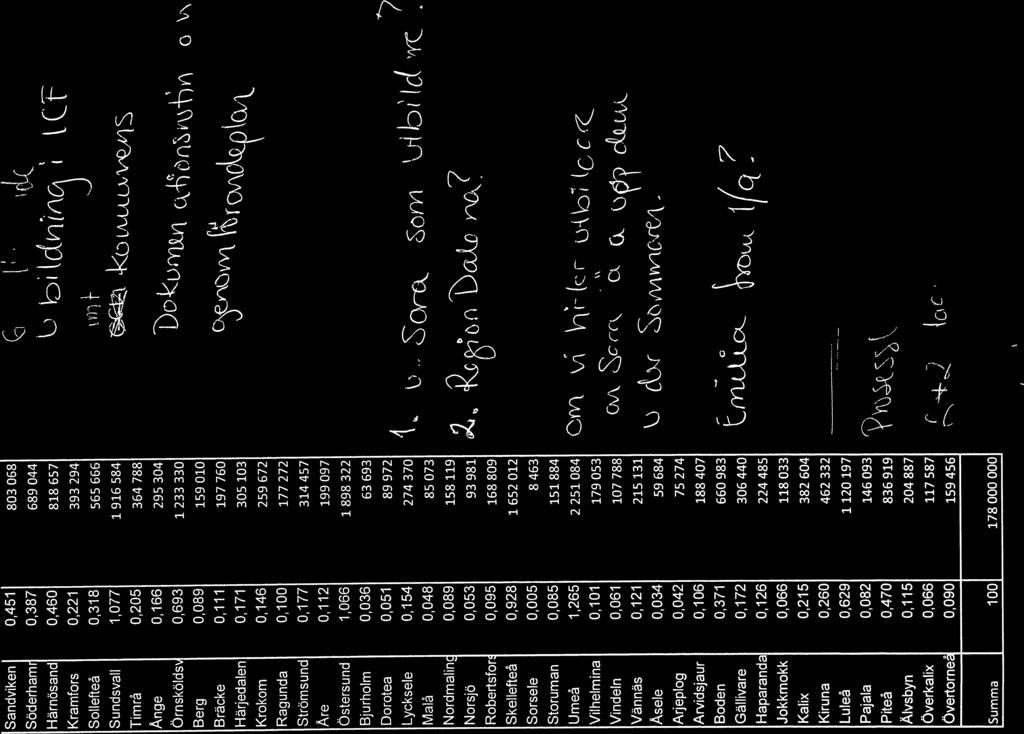 Sandviken 0,451 803 068
Söderhamn 0,387 689 044
Härnösand 0,460 818 657
Kramfors 0,221 393 294
Sollefteå 0,318 565 666
Sundsvall 1,077 1 916 584
Timrå 0,205 364 788
Ånge 0,166 295 304
Örnsköldsv 0,693 1 233 330
Berg 0,089 159 010
Bräcke 0,111 197 760
Härjedalen 0,171 305 103
Krokom 0,146 259 672
Ragunda 0,100 177 272
Strömsund 0,177 314 457
Åre 0,112 199 097
Östersund 1,066 1 898 322
Bjurholm 0,036 63 693
Dorotea 0,051 89 972
Lycksele 0,154 274 370
Malå 0,048 85 073
Nordmaling 0,089 158 119
Norsjö 0,053 93 981
Robertsfors 0,095 168 809
Skellefteå 0,928 1 652 012
Sorsele 0,005 8 463
Storuman 0,085 151 884
Umeå 1,265 2 251 084
Vilhelmina 0,101 179 053
Vindeln 0,061 107 788
Vännäs 0,121 215 131
Åsele 0,034 59 684
Arjeplog 0,042 75 274
Arvidsjaur 0,106 188 407
Boden 0,371 660 983
Gällivare 0,172 306 440
Haparanda 0,126 224 485
Jokkmokk 0,066 118 033
Kalix 0,215 382 604
Kiruna 0,260 462 332
Luleå 0,629 1 120 197
Pajala 0,082 146 093
Piteå 0,470 836 919
Älvsbyn 0,115 204 887
Överkalix 0,066 117 587
Övertorneå 0,090 159 456
Summa 100 178 000 000
bildning i ICF
kommunens
Dokumen ationsrutin o
genomförandeplan
1. Sara som utbild re?
2. Region Dala na?
om vi hi ter utbilda e
an Sara a upp dem
u der Sommaren.
Emilia from 1/9?